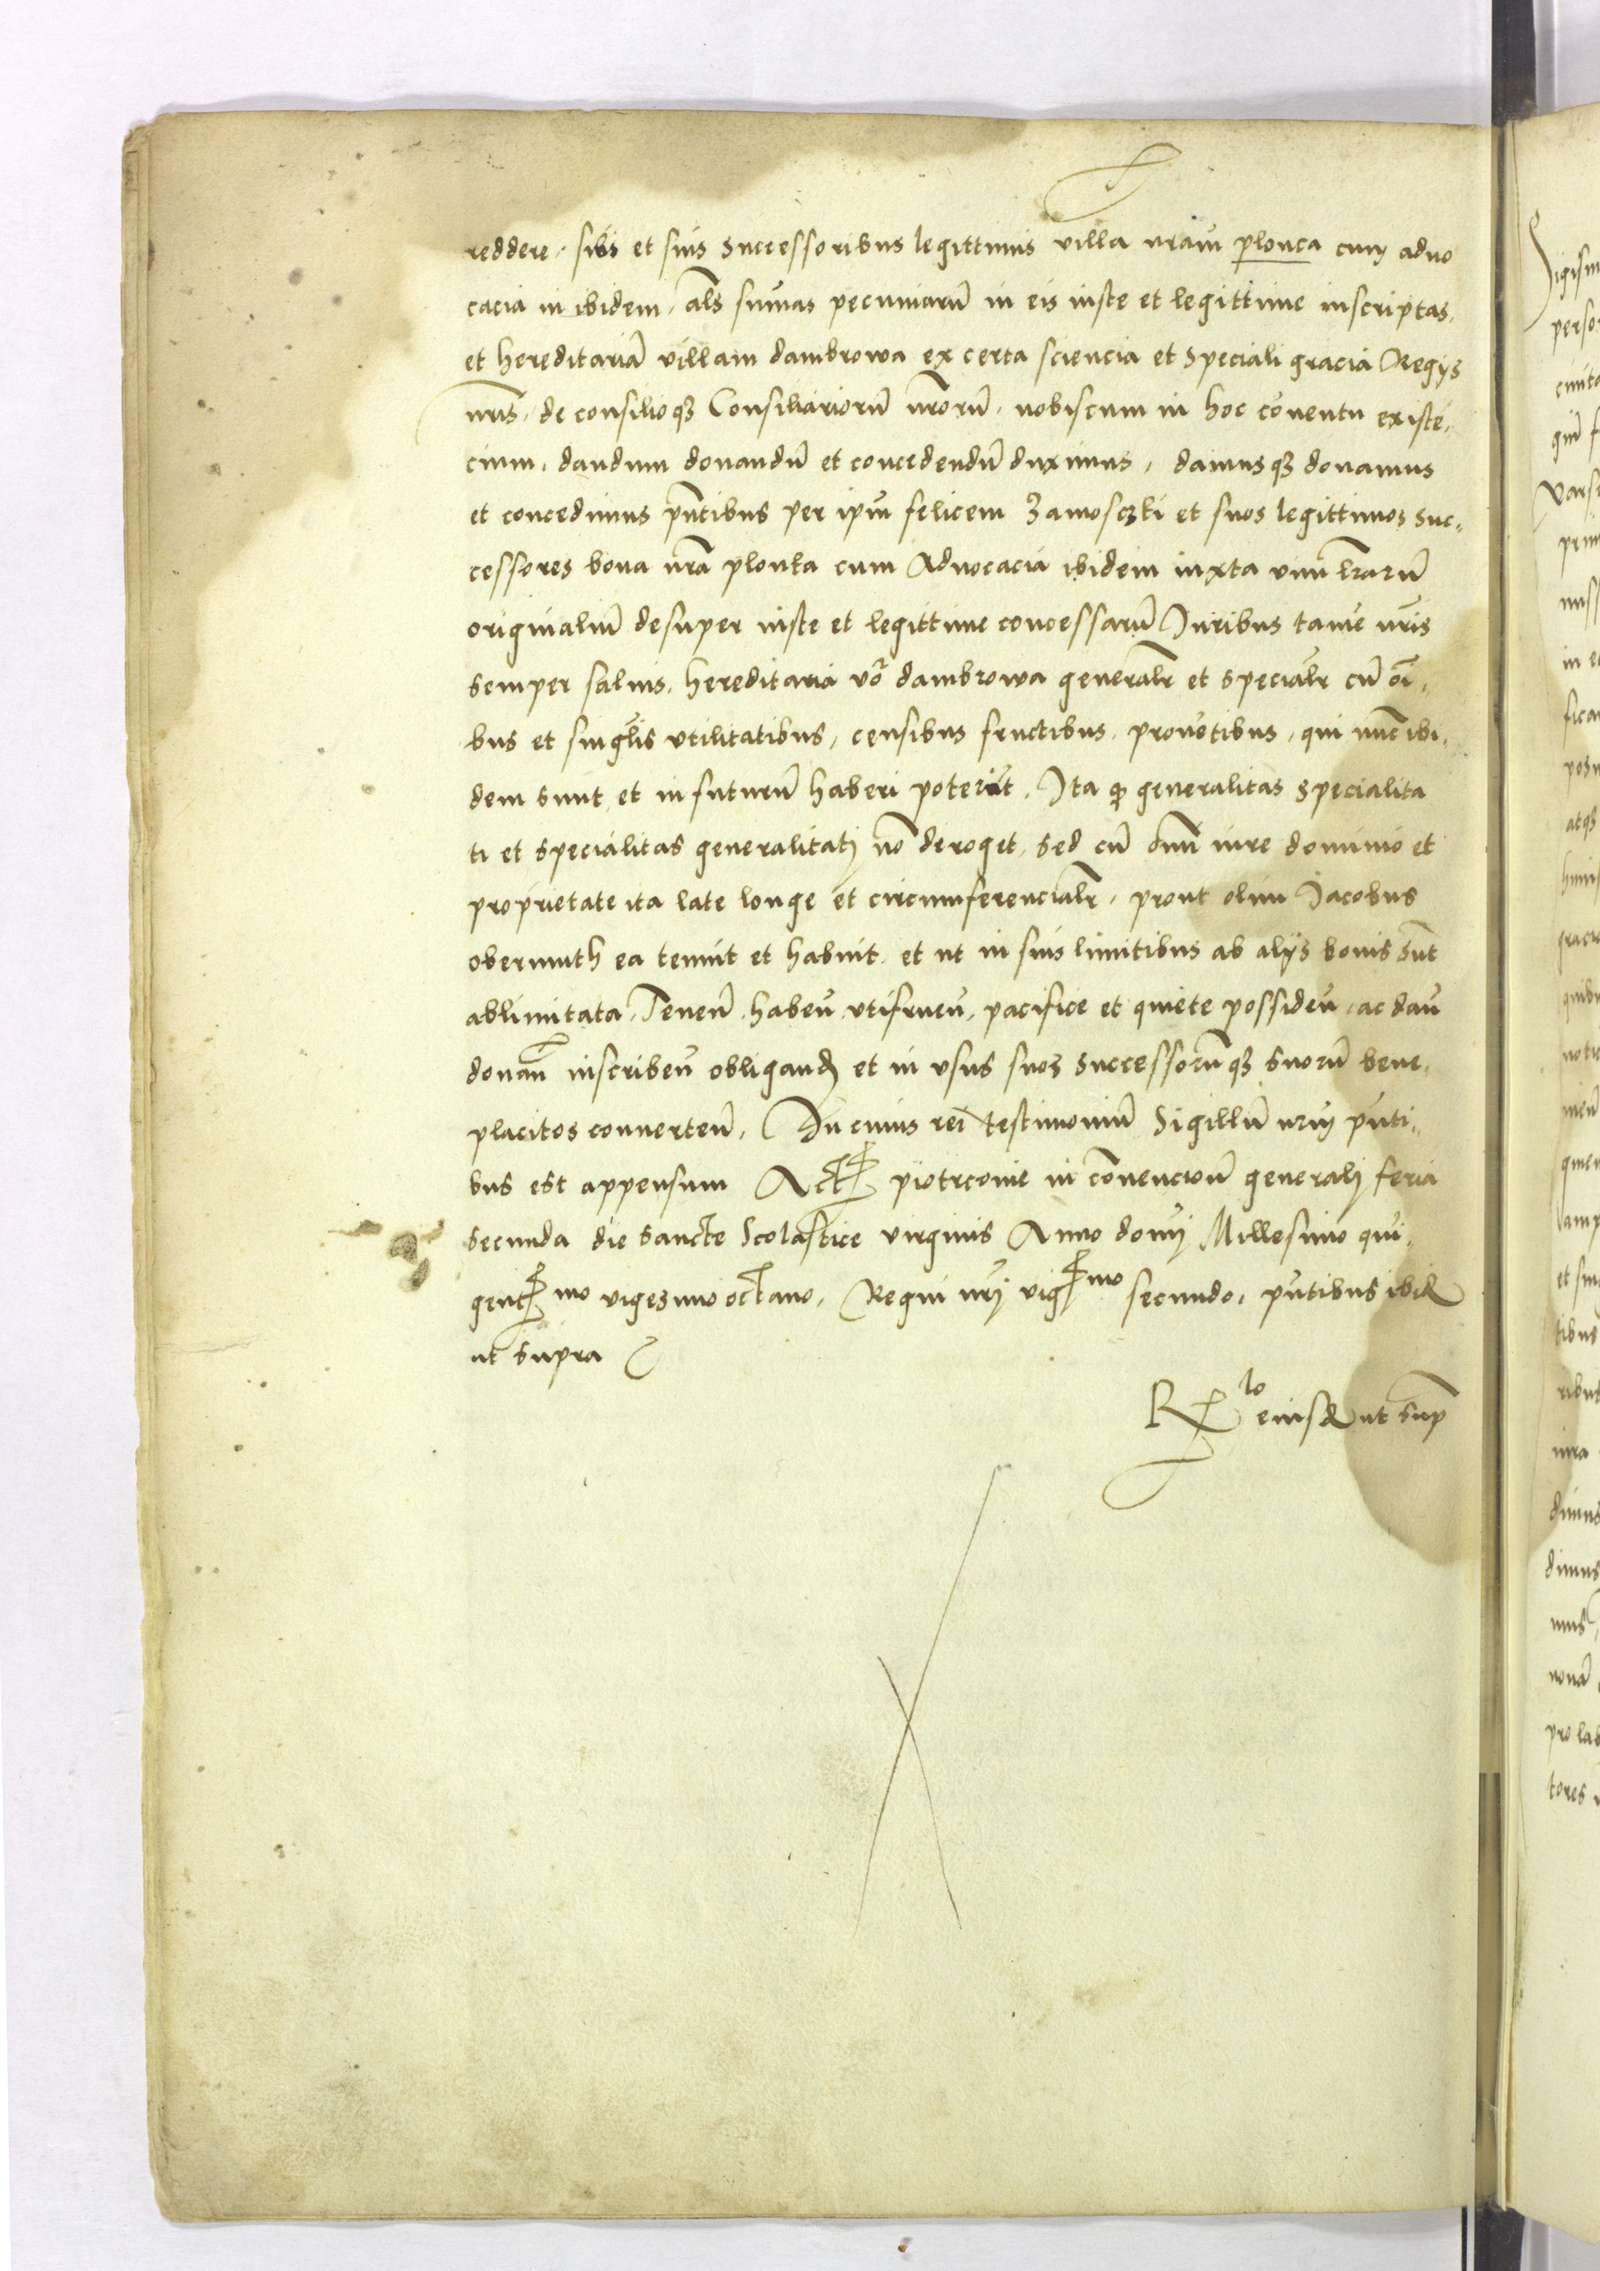 reddere. sibi et suis Successoribus legittimis villā nrām plonca cum aduo
cacia in ibidem, als sum̄as pecuniarū in eis iuste et legittime inscriptas,
et hereditariā villam dambrowa ex certa sciencia et speciali gracia Regijs
nrīs, de consilioq3 Consiliariorū nrōrū, nobiscum in hoc cōuentu existē,
cium, dandum donandū et concedendū duximus, damusq3 donamus
et concedimus pn̄tibus per ipm̄ felicem Zamosczki et suos legittimos Suc,
cessores bona nrā plonka cum Aduocacia ibidem iuxta vim lrārū
originaliū desuper iuste et legittime concessarū Juribus tamē nrīs
semper saluis. hereditariā vō dambrowa generalr et specialr cū oī,
bus et singlis vtilitatibus, censibus fructibus, prouētibus, qui nūc ibi,
dem sunt et in futurū haberi poterūt. Ita q generalitas specialita
ti et specialitas generalitatj nō deroget, sed cū omī iure dominio et
proprietate ita late longe et circumferencialr, prout olim Jacobus
obermuth ea tenuit et habuit, et ut in suis limitibus ab alijs bonis sūt
ablimitata, Tenen̄ haben̄ vtifruen̄, pacifice et quiete possiden̄, ac dan̄
donan̄ inscriben̄ obligand et in vsus suos successorūq3 suorū bene,
placitos conuerten̄. In cuius rei testimoniū Sigillū nrm̄ pn̄ti,
bus est appensum Act piotrcouie in cōuencion̄ generalj feria
secunda die sancte Scolastice virginis Anno domj Millesimo qui,
gentmo vigesimo octauo, Regni nrj vigmo secundo, pn̄tibus ibid
ut supra
Rlo eiusd ut sup